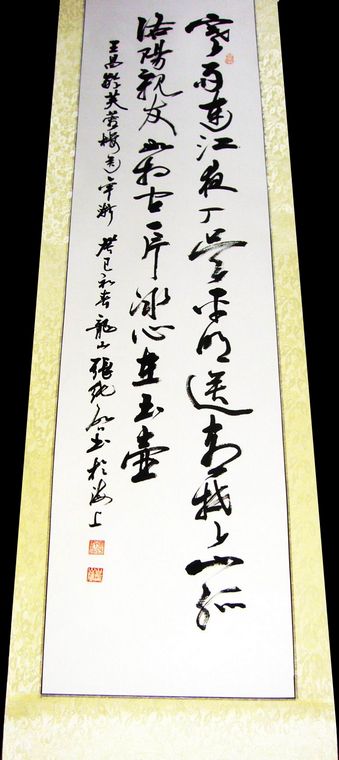 寒雨連江夜入吳平明送客楚山孤
洛陽親友如相問一片冰心在玉壺
王昌齡芙蓉樓送辛漸 癸巳初春龍山張書於海上